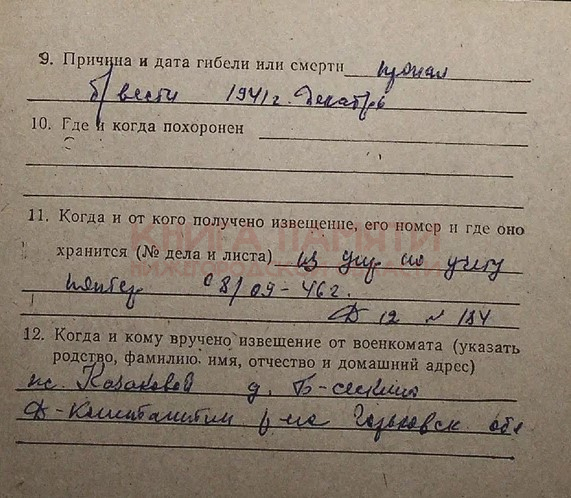 9. Причина и дата гибели или смерти пропал
б/вести 1941 г. Декабрь
10. Где и когда похоронен
11. Когда и от кого получено извещение, его номер и где оно
КНИГА ПАМЯТИ
хранится (№ дела и листа) из упр по учету
НИЖЕГОРОДСКОЙ ОБЛАСТИ
потер 8/09-46 г.
Д 12 л 184
12. Когда и кому вручено извещение от военкомата (указать
родство, фамилию, имя, отчество и домашний адрес)
Казаковой д.
Д-Константин р-на Горьковск обл